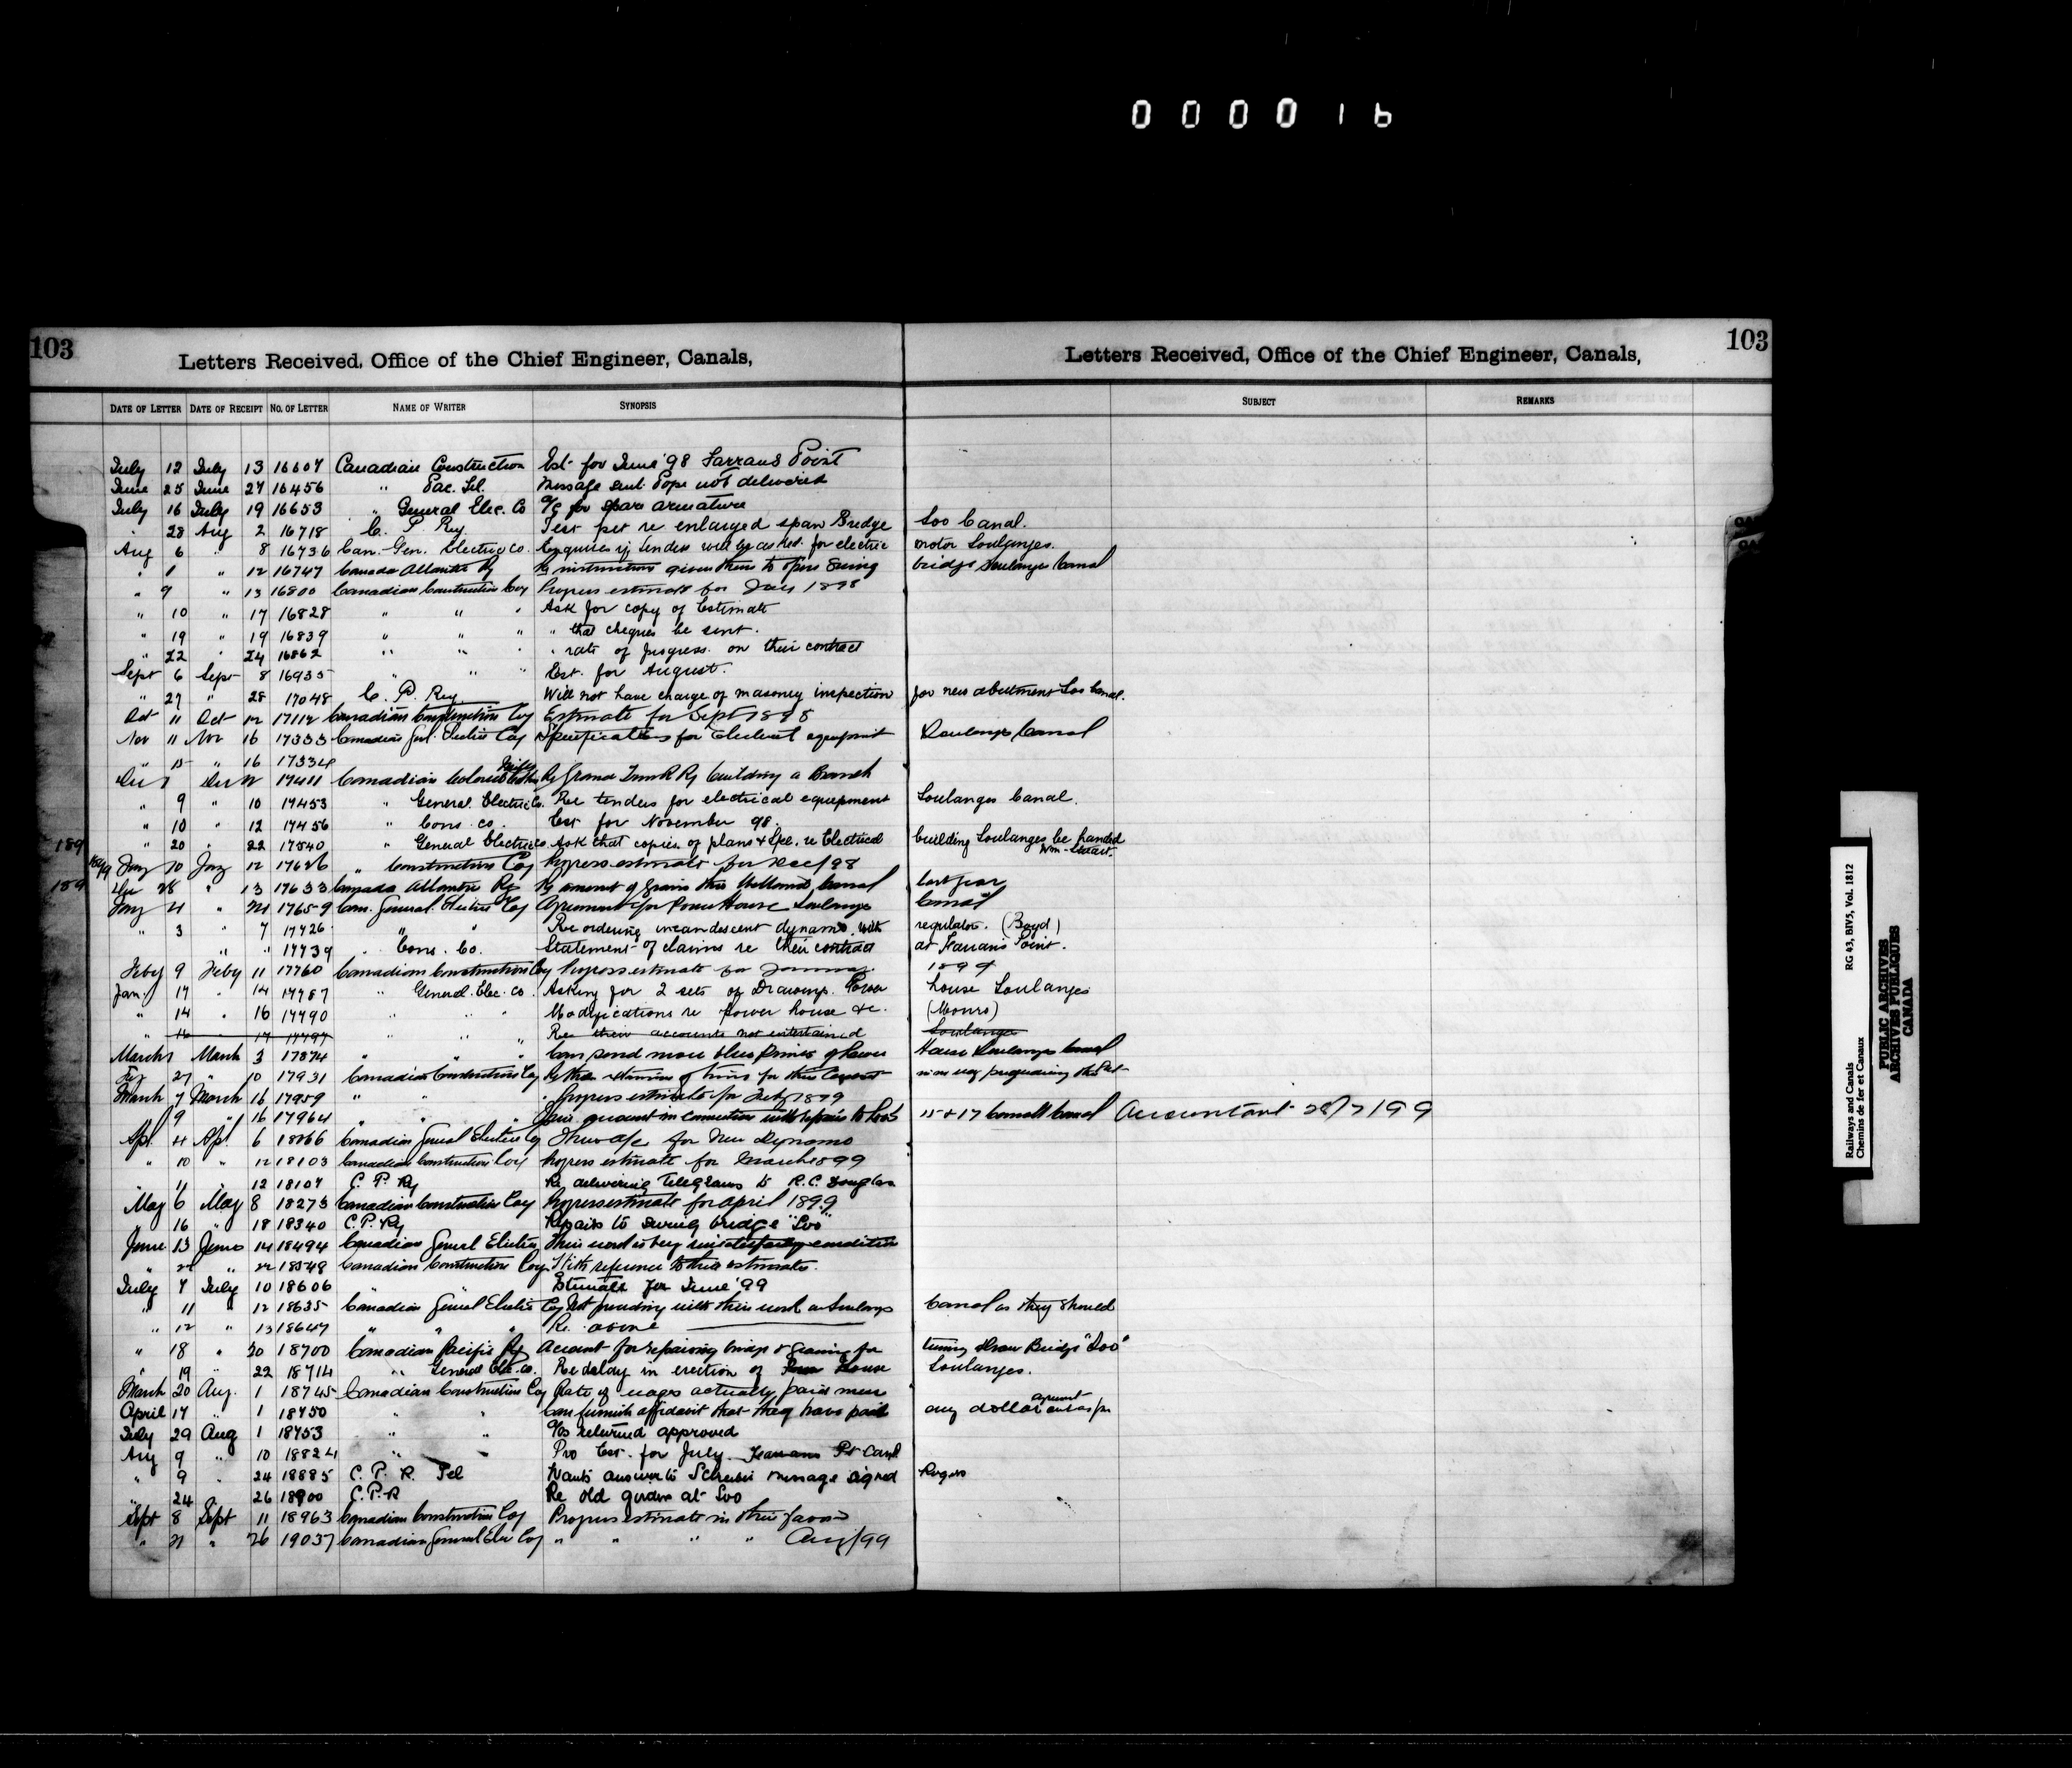 0 0 0 0 1 6
103
Letters Received, Office of the Chief Engineer, Canals,
Letters Received, Office of the Chief Engineer, Canals,
103
DATE OF LETTER DATE OF RECEIPT NO. OF LETTER NAME OF WRITER SYNOPSIS SUBJECT REMARKS
July 12 July 13 16607 Canadian Construction Est. for June '98 Farrans Point
June 25 June 27 16456 " Pac. Tel. Message sent Pope not delivered
July 16 July 19 16653 " General Elec. Co a/c for spare armature
" 28 Aug 2 16718 C. P. Ry Test pit re enlarged span Bridge Soo Canal.
Aug 6 " 8 16736 Can. Gen. Electric Co. Enquires if tenders will be asked for electric motor Soulanges.
" 1 " 12 16747 Canada Atlantic Ry Re instructions given them to open Swing bridge Soulanges Canal
" 9 " 13 16800 Canadian Construction Coy Progress estimate for July 1898
" 10 " 17 16828 " " " Ask for copy of Estimate
" 19 " 19 16839 " " " " that cheques be sent.
" 22 " 24 16862 " " " " rate of progress on their contract
Sept 6 Sept 8 16935 " " " Est. for August.
" 27 " 28 17048 C. P. Ry Will not have charge of masonry inspection for new abutment Soo Canal.
Oct 11 Oct 12 17112 Canadian Construction Coy Estimate for Sept 1898
Nov 11 Nov 16 17333 Canadian Genl. Electric Coy Specifications for Electrical equipment Soulanges Canal
" 15 " 16 17334
Dec 7 Dec 17411 Canadian Re Grand Trunk Ry building a Branch
" 9 " 10 17453 " General Electric Co. Re tenders for electrical equipment Soulanges Canal.
" 10 " 12 17456 " Cons. Co. Est for November 98.
189 " 20 " 22 17540 " General Electric Co Ask that copies of plans & Spe. re Electrical building Soulanges be handed Wm. Stewart.
1899 Jany 10 Jany 12 17626 " Construction Coy Progress estimate for Dec/98
189 Dec 28 " 13 17633 Canada Atlantic Ry Re amount of grain thro Welland Canal last year
Jany 21 " 24 17659 Can. General Electric Coy Agreement for Power House Soulanges Canal
" 3 " 7 17726 " " Re ordering incandescent dynamo with regulator. (Boyd)
" " 17739 " Cons. Co. Statement of claims re their contract at Farrans Point.
Feby 9 Feby 11 17760 Canadian Construction Coy Progress estimate for January 1899
Jan. 17 " 14 17787 " General Elec. Co. Asking for 2 sets of Drawings Power house Soulanges
" 14 " 16 17790 " " " Modifications re power house &c. (Monro)
" 16 " 17 17797 " " " Re their accounts not entertained Soulanges
March 1 March 3 17874 " " " Can send more blue prints of Power House Soulanges Canal
Fey 27 " 10 17931 Canadian Construction Coy Re the extension of time for their Contract in no way prejudicing the
March 7 March 16 17959 " " Progress estimate for Feby 1899
" 9 " 16 17964 " " account in connection with repairs to Locks 15 & 17 Cornwall Canal Accountant 28/7/99
Apl. 4 Apl. 6 18066 Canadian General Electric Coy Their a/c for New Dynamo
" 10 " 12 18103 Canadian Construction Coy Progress estimate for March 1899
" 11 " 12 18107 C. P. Ry Re delivering Telegrams to R.C. Douglas
May 6 May 8 18273 Canadian Construction Coy Progress estimate for April 1899
" 16 " 18 18340 C. P. Ry Repairs to swing bridge "Soo"
June 13 June 14 18494 Canadian General Electric Their work is very unsatisfactory condition
" 22 " 22 18548 Canadian Construction Coy With reference to their estimates.
July 7 July 10 18606 " " Estimate for June '99
" 11 " 12 18635 Canadian General Electric Coy Not proceeding with their work on Soulanges Canal as they should
" 12 " 13 18647 " " " Re. above
" 18 " 20 18700 Canadian Pacific Ry Account for repairing bridge & gearing for turning Draw Bridge "Soo"
" 19 " 22 18714 " General Elec. Co. Re delay in erection of Power House Soulanges.
March 20 Aug. 1 18745 Canadian Construction Coy Rate of wages actually paid men
April 17 " 1 18750 " " Can furnish affidavit that they have paid any dollar amount
July 29 Aug 1 18753 " " a/cs returned approved
Aug 9 " 10 18824 " " Pro Est. for July Farrans Pt Canal
" 9 " 24 18885 C. P. R. Tel Wants answer to Schreiber message signed Rogers
" 24 " 26 18900 C. P. R Re old girders at Soo
Sept 8 Sept 11 18963 Canadian Construction Coy Progress estimate in their favor
" 21 " 26 19037 Canadian General Elec Coy " " " " Aug/99
Railways and Canals RG 43, BIV5, Vol. 1812
Chemins de fer et Canaux
PUBLIC ARCHIVES
ARCHIVES PUBLIQUES
CANADA